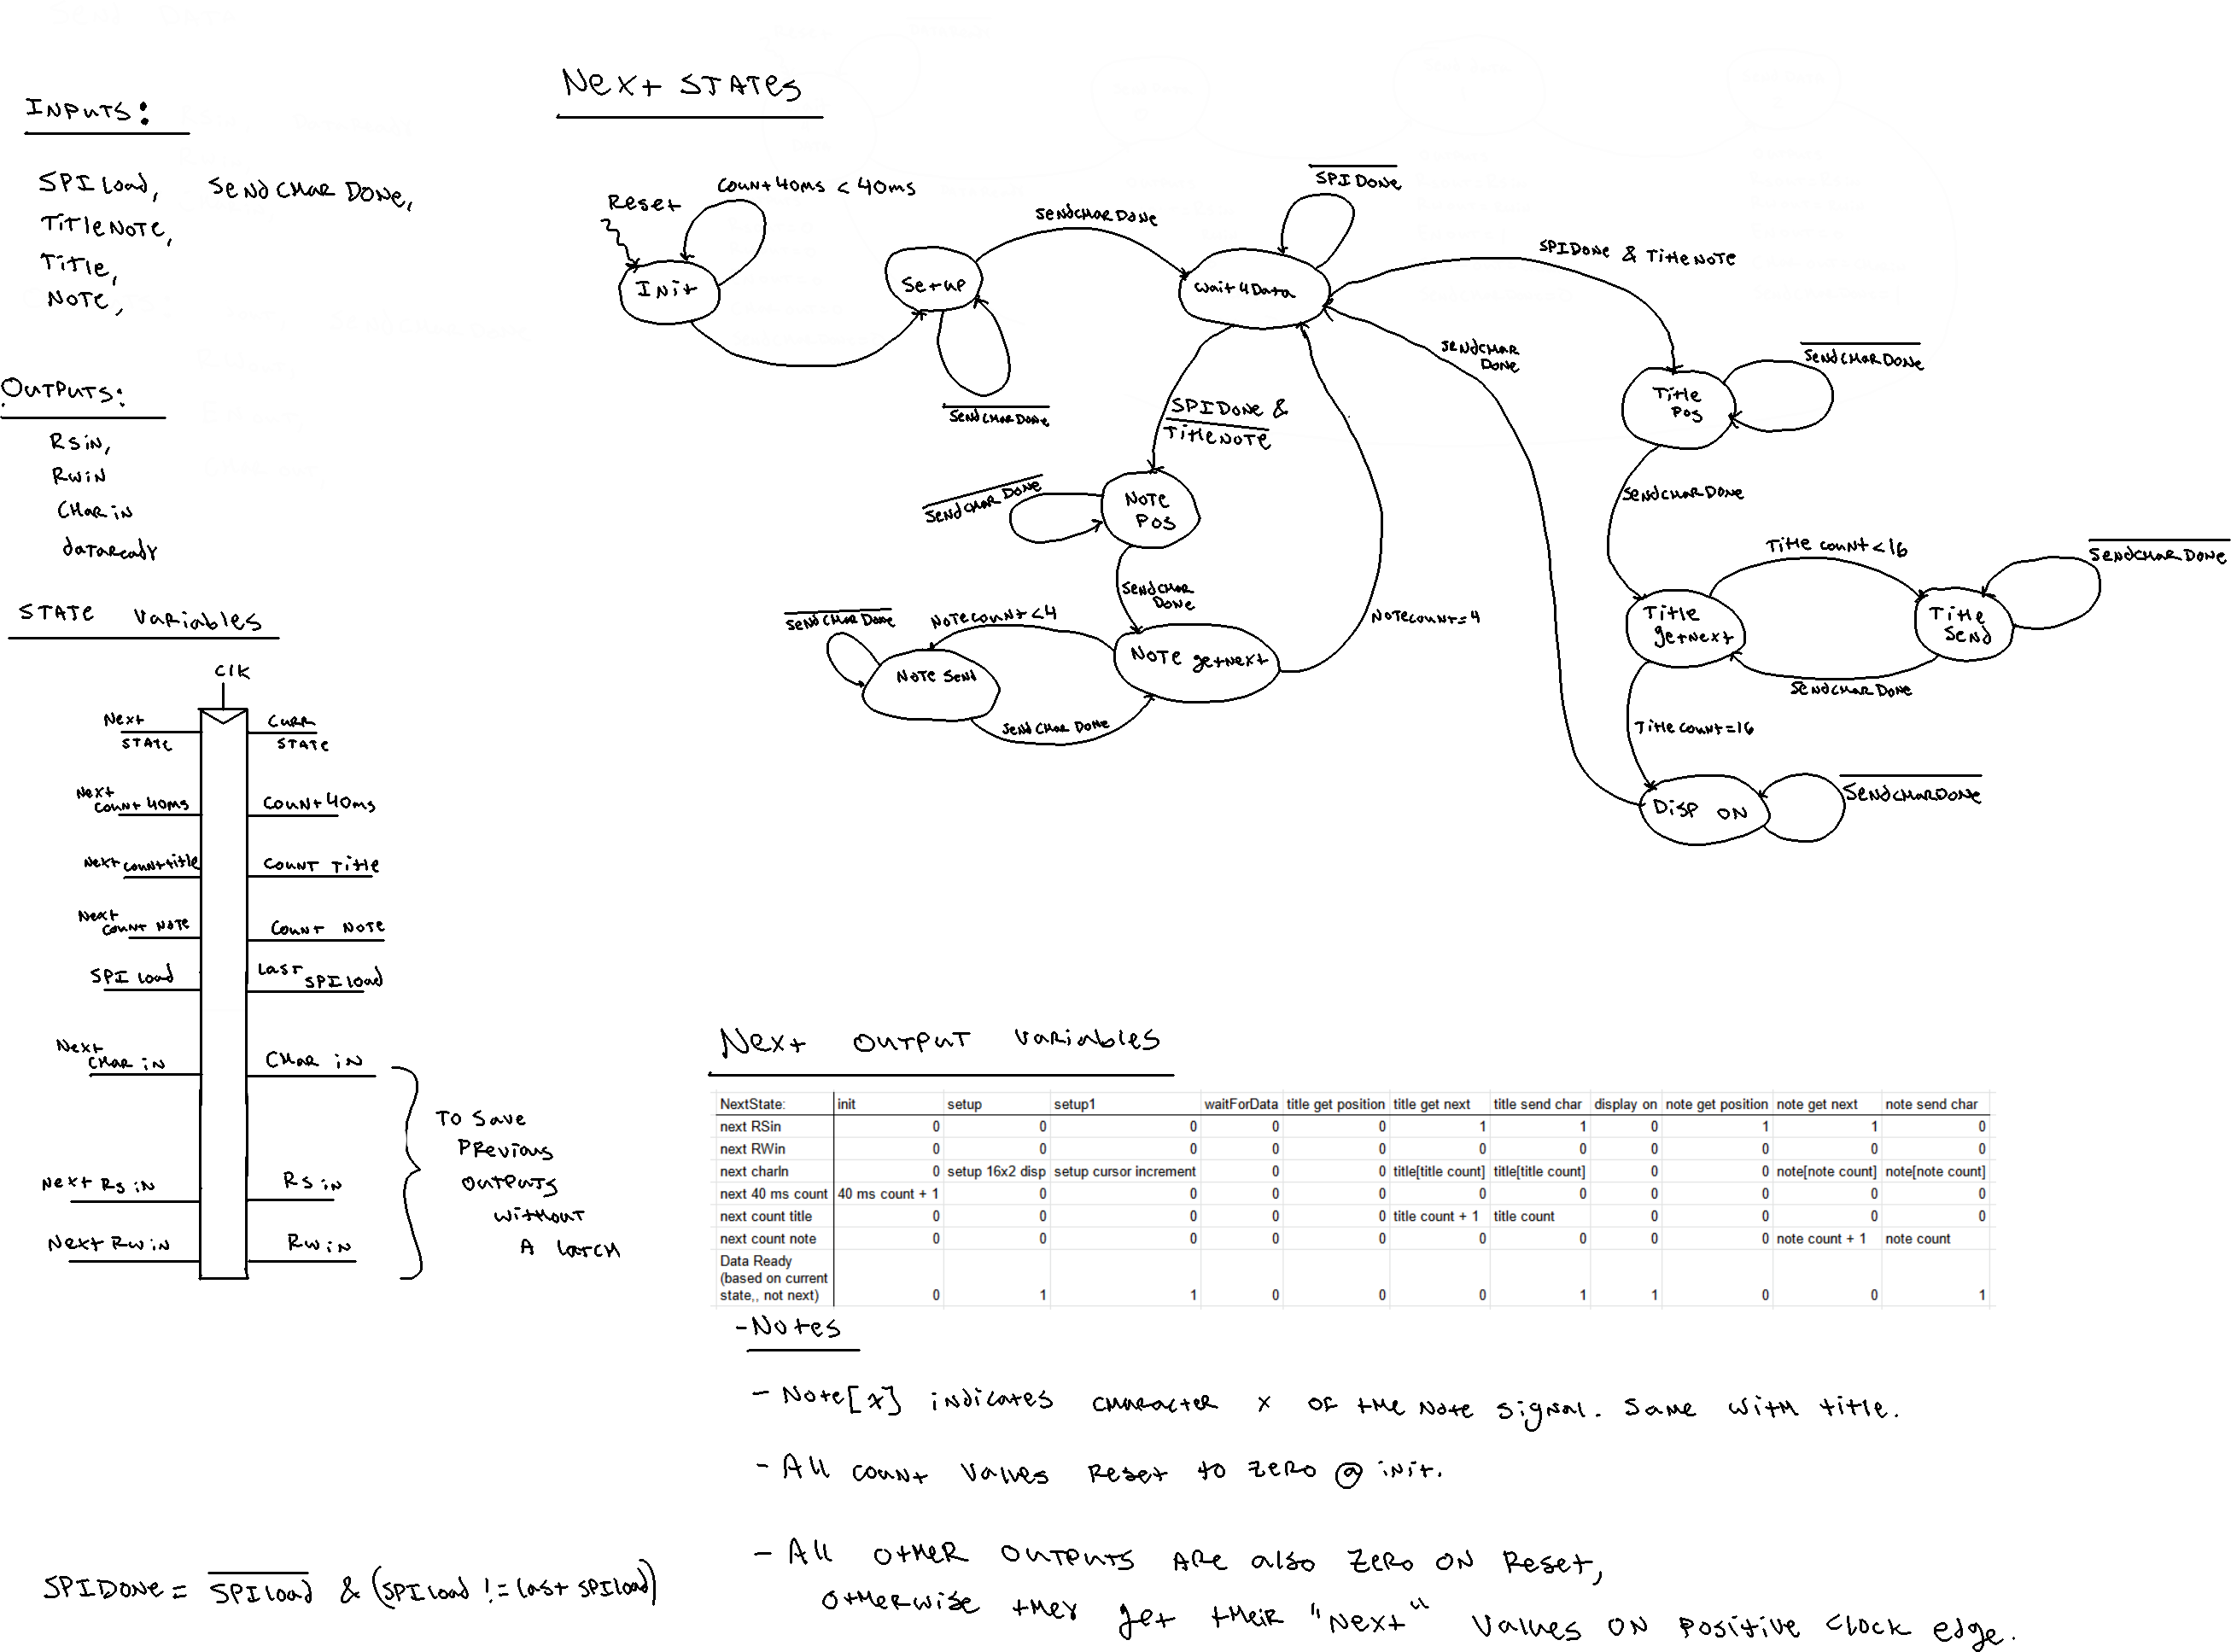 INPUTS:
SPI load, SENDCHAR DONE,
TITLENOTE,
Title,
NOTE,
OUTPUTS:
RSiN,
RWiN
CHAR iN
dataReady
STATE variables
Clk
Next STATE
Curr STATE
Next count 40ms
Count 40ms
Next count title
Count Title
Next Count Note
Count Note
SPI load
LAST SPI load
Next CHar iN
CHar iN
Next RsiN
RsiN
Next RwiN
RwiN
To save
Previous
outputs
without
A latch
SPIDONE = SPIload & (SPIload != last SPIload)
Next STATES
Reset
Count 40ms < 40ms
INit
Setup
SENDCHARDONE
SENDCHARDONE
SPIDONE
wait4Data
SPIDONE & TitleNOTE
SPIDONE &
TitleNOTE
SENDCHAR
DONE
Title
Pos
SENDCHARDONE
SENDCHARDONE
SENDCHARDONE
NOTE
POS
SENDCHAR
DONE
Title count<16
SENDCHARDONE
Title
getNext
Title
Send
SENDCHARDONE
SENDCHARDONE
NOTEcount<4
NOTE SENd
NOTE getNext
SENDCHARDONE
NOTEcount=4
Title count=16
Disp ON
SENDCHARDONE
Next OUTPUT variables
NextState: init setup setup1 waitForData title get position title get next title send char display on note get position note get next note send char
next RSin 0 0 0 0 0 1 1 0 1 1 0
next RWin 0 0 0 0 0 0 0 0 0 0 0
next charIn 0 setup 16x2 disp setup cursor increment 0 0 title[title count] title[title count] 0 0 note[note count] note[note count]
next 40 ms count 40 ms count + 1 0 0 0 0 0 0 0 0 0 0
next count title 0 0 0 0 0 title count + 1 title count 0 0 0 0
next count note 0 0 0 0 0 0 0 0 0 note count + 1 note count
Data Ready
(based on current
state,, not next) 0 1 1 0 0 0 1 1 0 0 1
-Notes
- Note[x] indicates character x of the Note signal. Same with title.
- All count values Reset to zero @ init.
- All other outputs are also zero on Reset,
otherwise they get their "Next" values on positive clock edge.